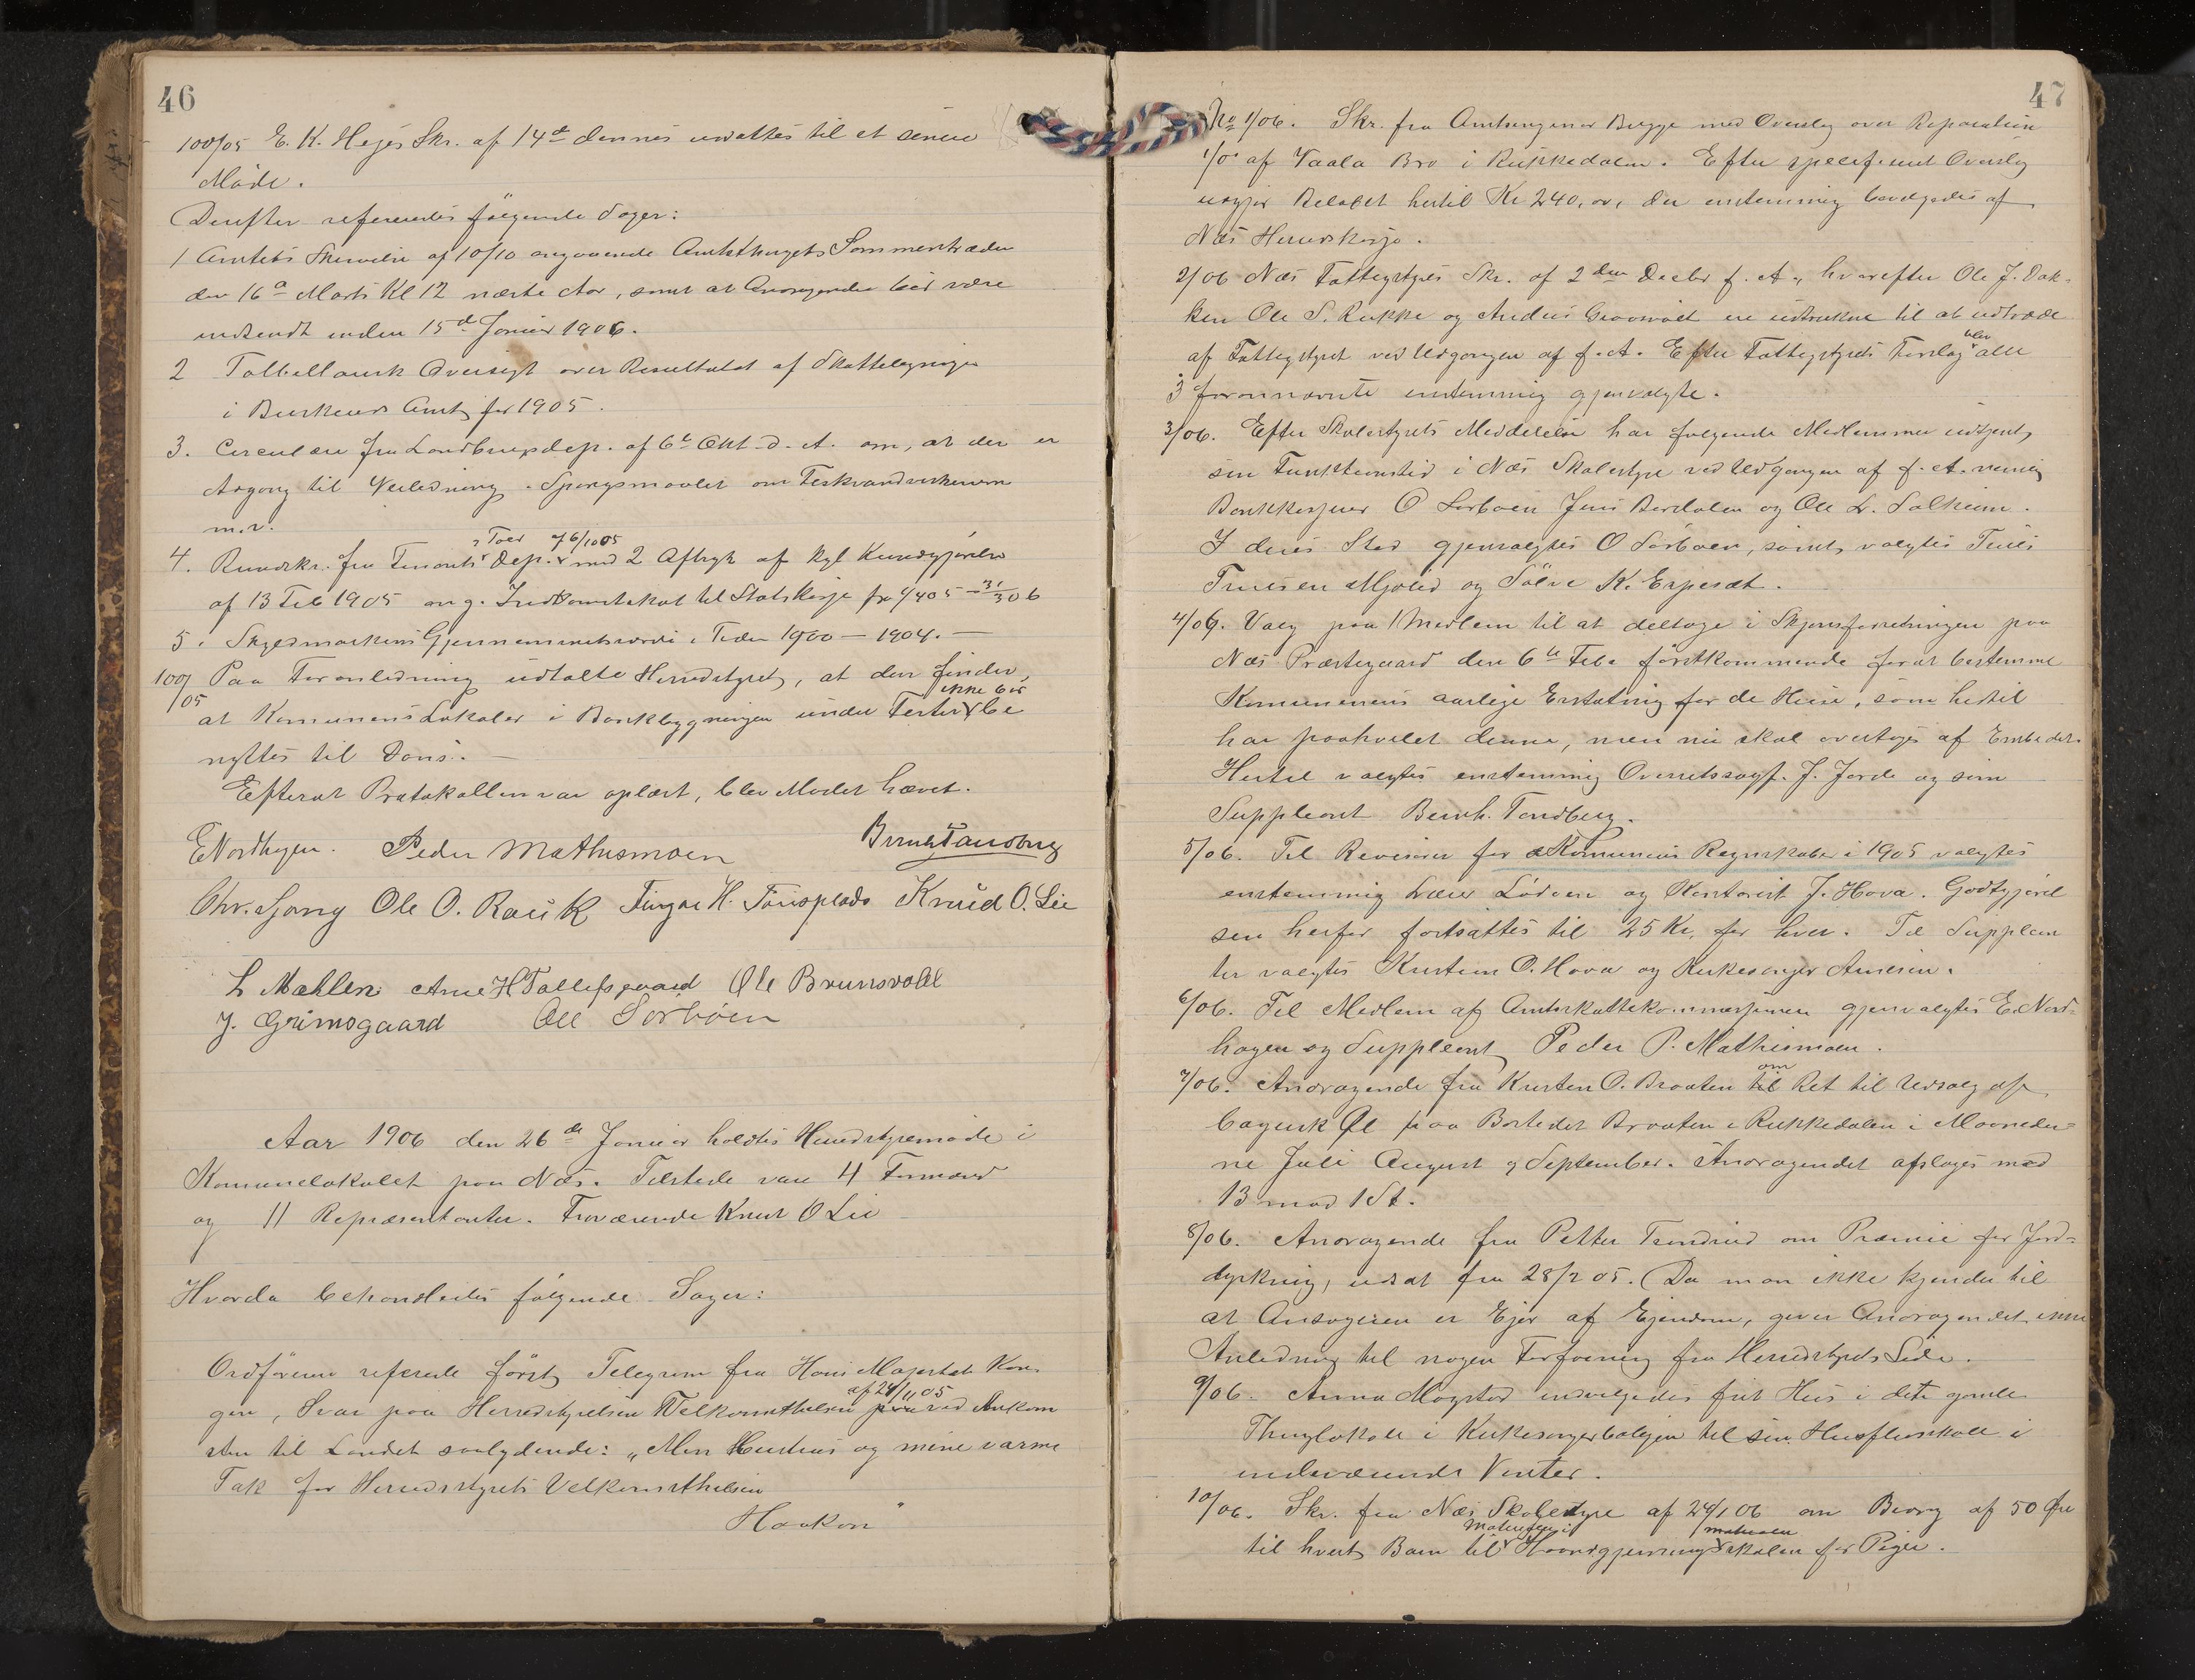 46
100/05 E. K. Hejes Skr. af 14de dennes udsattes til et senere
Møde.
Derefter refereredes følgende Sager:
1 Amtets Skrivelse af 10/10 angaaende Amtsthingets Sammentræden
den 16de Marts Kl 12 næste Aar, samt at Andragender bør være
indsendt inden 15de Januar 1906.
2 Tabellarisk Oversigt over Resultatet af Skatteligningen
i Buskeruds Amt for 1905.
3. Circulære fra Landbrugsdep. af 6te Okt. d. A. om, at der er
Adgang til Veiledning i Spørgsmaalet om Ferskvandsfiskerierne
m.v.
4. Rundskr. fra Finants & Told Dep. af 6/10 05 med 2 Aftryk af Kgl Kundgjørelse
af 13 Feb 1905 ang. Indkomstskat til Statskassen fra 1/4 05 – 31/3 06
5. Skyldmarkens Gjennemsnitsværdi i Tiden 1900 – 1904. –
100/05 Paa Foranledning udtalte Herredstyret, at den finder,
at Komunens Lokaler i Bankbygningen under Fester ikke bør be
nyttes til Dans. –
Efterat Protokollen var oplæst, blev Mødet hævet.
E Nordhagen. Peder Mathismoen Bernh. Tandberg
Chr. Sjong Ole O. Rauk Torgar H. Trøisplads Knud O. Lie
L Mæhlen Arne H Tollefsgaard Ole Brunsvold
J. Grimsgaard Ole Sørbøen
Aar 1906 den 26de Januar holdtes Herredstyremøde i
Komunelokalet paa Næs. Tilstede vare 4 Formænd
og 11 Repræsentanter. Fraværende Knut O Lie
Hvorda behandledes følgende Sager:
Ordføreren refererede først Telegram fra Hans Majestæt Kon-
gen, Svar paa Herredstyrelsens Velkomsthilsen af 24/11 05 ved Ankom
sten til Landet saalydende: „Min Hustrus og mine varme
Tak for Herredsstyrets Velkomsthilsen
Haakon"
47
No 1/06. Skr. fra Amtsingeniør Bugge med Overslag over Reparation
af Vaala Bro i Rukkedalen. Efter specificeret Overslag
udgjør Beløbet hertil Kr 240,00, der enstemmig bevilgedes af
Næs Herredskasse.
2/06 Næs Fattigstyres Skr. af 2den Decbr f. A., hvorefter Ole J. Dok-
ken Ole S. Rukke og Anders Graavoldt ere udtrukne til at udtræde
af Fattigstyret ved Udgangen af f. A. Efter Fattigstyrets Forslag blev alle
3 forannævnte enstemmig gjenvalgte.
3/06. Efter Skolestyrets Meddelelse har følgende Medlemmer udtjent
sin Funktionstid i Næs Skolestyre ved Udgangen af f. A. nemlig
Bankkasjerer O Sørbøen Jens Berdalen og Ole L. Solheim.
I deres Sted gjenvalgtes O Sørbøen, samt valgtes Truls
Trulsen Mjøset og Sølve K. Espeset.
4/06. Valg paa 1 Medlem til at deltage i Skjønsforretningen paa
Næs Præstegaard den 6te Feb. førstkommende for at bestemme
Komunenens aarlige Erstatning for de Huse, som hertil
har paahvilet denne, men nu skal overtages af Embedet.
Hertil valgtes enstemmig Overretssagf. J. Jorde og som
Suppleant Bernh. Tandberg.
5/06. Til Revisorer for Komunens Regnskaber i 1905 valgtes
enstemmig Lærer Lødøen og Kontorist J. Hova. Godtgjørel
sen herfor fortsattes til 25 Kr. for hver. Til Supplean
ter valgtes Kristian O. Hova og Kirkesanger Arnesen.
6/06. Til Medlem af Amtsskattekommissionen gjenvalgtes E. Nord-
hagen og Suppleant Peder P. Mathismoen.
7/06. Andragende fra Kristen O. Braaten om Ret til Udsalg af
bayersk Øl paa Bostedet Braaten i Rukkedalen i Maaneder-
ne Juli August og September. Andragendet afsloges med
13 mod 1 St.
8/06. Andragende fra Petter Trondrud om Præmie for Jord-
dyrkning, udsat fra 28/2 05. Da man ikke kjender til
at Ansøgeren er Ejer af Ejendom, giver Andragendet ikke
Anledning til nogen Forføining fra Herredstyrets Side.
9/06. Anna Mogstad indvilgedes frit Hus i dette gamle
Thinglokale i Kirkesangerboligen til sin Husflidsskole i
indeværende Vinter.
10/06. Skr. fra Næs Skolestyre af 24/1 06 om Bidrag af 50 Øre
til hvert Barn til Materialer i Haandgjerningsskolen for Piger.